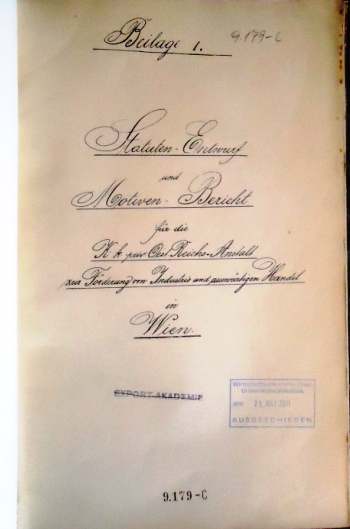 Beilage 1.
9.179-C
Statuten-Entwurf
und
Motiven-Bericht
für die
K. k. priv. Oest. Reichs-Anstalt
zur Förderung von Industrie und auswärtigen Handel
in
Wien.
EXPORT-AKADEMIE
AUSGESCHIEDEN
9.179-C